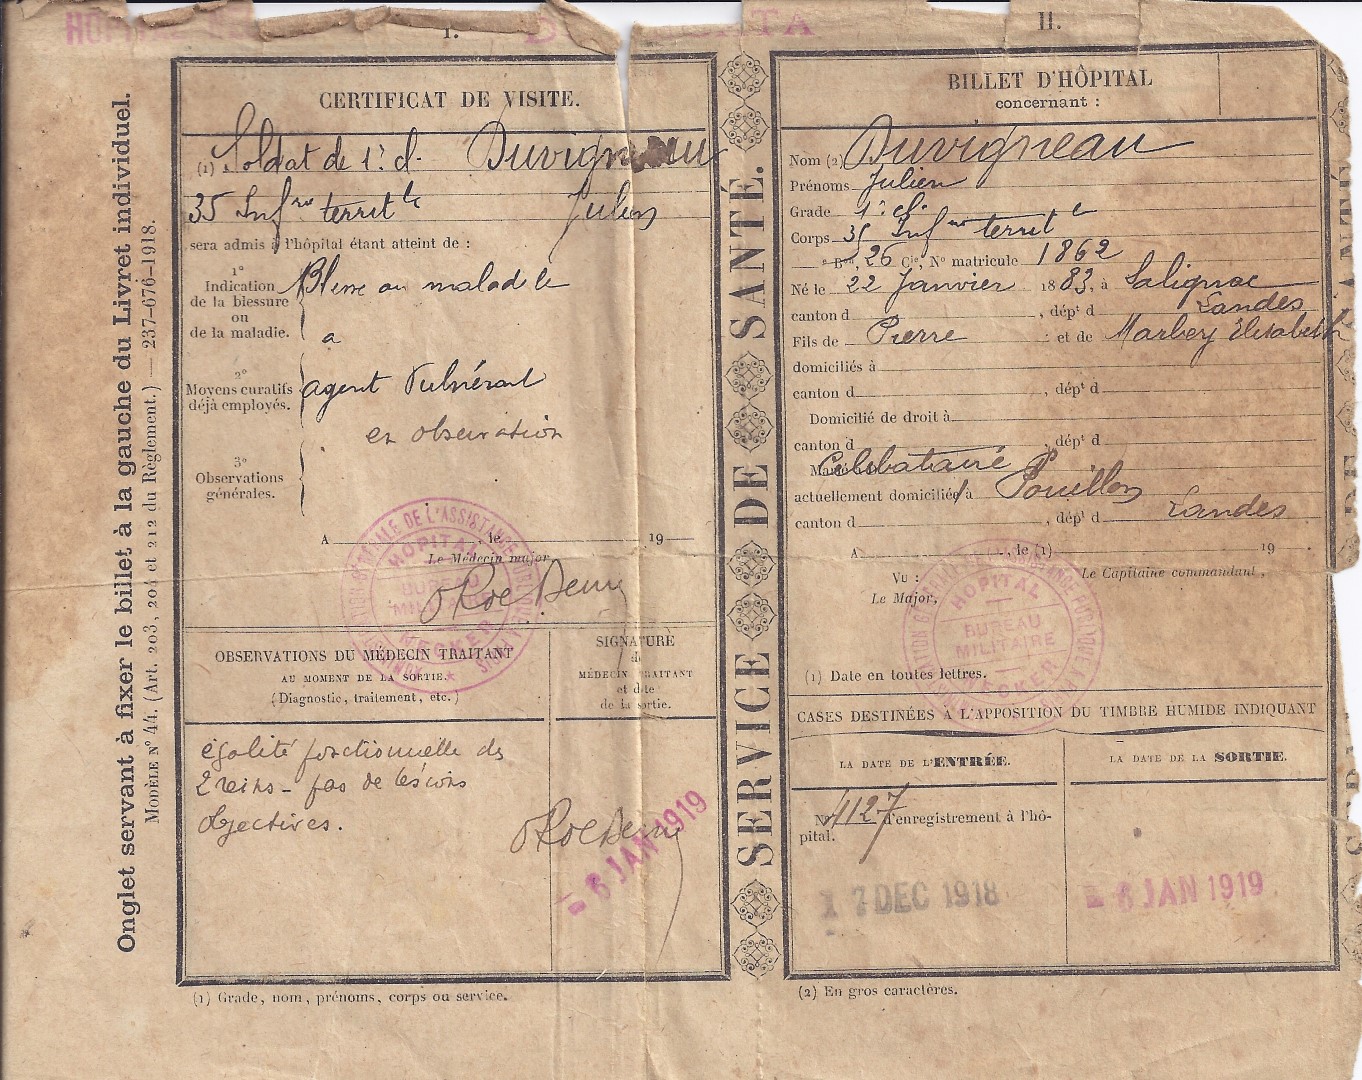 Onglet servant à fixer le billet à la gauche du Livret individuel.
MODÈLE N° 44. (Art. 203, 204 et 212 du Règlement.) — 237-676-1918.
I.
CERTIFICAT DE VISITE.
(1) Soldat de 1e cl. Duvigneau
35 Infrie territle Julien
sera admis à l'hôpital étant atteint de :
1°
Indication
de la blessure
ou
de la maladie.
Blessé ou malade
a
2°
Moyens curatifs
déjà employés.
agent vulnérant
en observation
3°
Observations
générales.
A , le 19
Le Médecin major
HÔPITAL
BUREAU
MILITAIRE
NECKER
OBSERVATIONS DU MÉDECIN TRAITANT
AU MOMENT DE LA SORTIE.
(Diagnostic, traitement, etc.)
SIGNATURE
du
MÉDECIN TRAITANT
et date
de la sortie.
égalité fonctionnelle des
2 reins - pas de lésions
objectives.
- 6 JAN 1919
(1) Grade, nom, prénoms, corps ou service.
SERVICE DE SANTÉ.
II.
BILLET D'HÔPITAL
concernant :
Nom (2) Duvigneau
Prénoms Julien
Grade 1e cl.
Corps 35 Infrie territle
e Bon, 26 Cie, N° matricule 1862
Né le 22 Janvier 1883, à Salignac
canton d , dépt d Landes
Fils de Pierre et de Marbey Élisabeth
domiciliés à
canton d , dépt d
Domicilié de droit à
canton d , dépt d
Célibataire
actuellement domicilié à Pouillon
canton d , dépt d Landes
A , le (1) 19
Vu :
Le Major,
Le Capitaine commandant,
HÔPITAL
BUREAU
MILITAIRE
NECKER
(1) Date en toutes lettres.
CASES DESTINÉES À L'APPOSITION DU TIMBRE HUMIDE INDIQUANT
LA DATE DE L'ENTRÉE.
LA DATE DE LA SORTIE.
N° 4127 d'enregistrement à l'hô-
pital.
7 DEC 1918
- 6 JAN 1919
(2) En gros caractères.